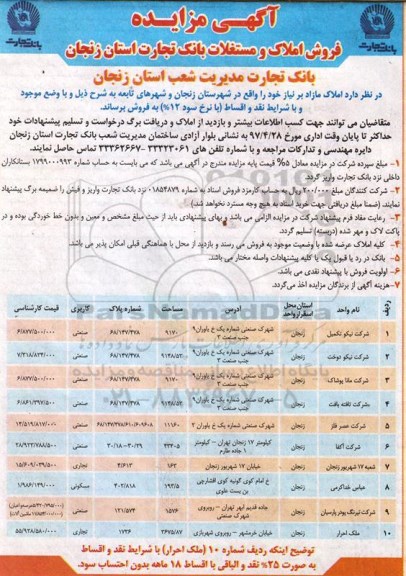 آگهی مزایده
فروش املاک و مستغلات بانک تجارت استان زنجان
بانک تجارت مدیریت شعب استان زنجان
در نظر دارد املاک مازاد بر نیاز خود را واقع در شهرستان زنجان و شهرهای تابعه به شرح ذیل و با وضع موجود
و با شرایط نقد و اقساط (با نرخ سود ۱۲%) به فروش برساند.
متقاضیان می توانند جهت کسب اطلاعات بیشتر و بازدید از املاک و دریافت برگ درخواست و تسلیم پیشنهادات خود
حداکثر تا پایان وقت اداری مورخ ۹۷/۴/۲۸ به نشانی بلوار آزادی ساختمان مدیریت شعب بانک تجارت استان زنجان
دایره مهندسی و تدارکات مراجعه و با شماره تلفن های ۳۳۳۲۳۰۶۱ - ۳۳۳۶۲۶۶۷ تماس حاصل نمایند.
۱- مبلغ سپرده شرکت در مزایده معادل ۵% قیمت پایه مزایده مندرج در آگهی می باشد که می بایست به حساب شماره ۱۷۹۹۰۰۰۹۹۳ بستانکاران
داخلی نزد بانک تجارت واریز گردد.
۲- شرکت کنندگان مبلغ ۲۰۰/۰۰۰ ریال به حساب کارمزد فروش اسناد به شماره ۰۱۸۵۴۸۷۹ نزد بانک تجارت واریز و فیش را ضمیمه برگ پیشنهاد
نمایند. (ضمنا مبلغ دریافتی جهت خرید اسناد به هیچ وجه مسترد نخواهد شد)
۳- رعایت مفاد فرم پیشنهاد شرکت در مزایده الزامی می باشد و بهای پیشنهادی باید از حیث مبلغ مشخص و معین و بدون خط خوردگی بوده و در
پاکت لاک و مهر شده (دربسته) تسلیم گردد.
۴- کلیه املاک عرضه شده با وضعیت موجود به فروش می رسند و بازدید از محل با هماهنگی قبلی امکان پذیر می باشد.
۵- بانک در رد یا قبول یک یا کلیه پیشنهادات واصله مختار می باشد.
۶- اولویت فروش با پیشنهاد نقدی می باشد.
۷- هزینه آگهی از برندگان مزایده اخذ می گردد.
ردیف نام واحد استان محل استقرار واحد آدرس مساحت شماره پلاک کاربری قیمت کارشناسی
۱ شرکت نیکو تکمیل زنجان شهرک صنعتی شماره یک خ یاوران۹ جنب صنعت ۳ ۹۱۷۰ ۶۸/۱۴۷/۴۷۸ صنعتی ۶/۸۷۷/۵۰۰/۰۰۰
۲ شرکت نیکو دوخت زنجان شهرک صنعتی شماره یک خ یاوران۹ جنب صنعت ۳ ۹۱۴۸/۵۲ ۶۸/۱۴۷/۴۷۸ صنعتی
۳ شرکت مانا پوشاک زنجان شهرک صنعتی شماره یک خ یاوران۹ جنب صنعت ۳ ۹۱۷۰ ۶۸/۱۴۷/۴۷۸ صنعتی ۶/۸۷۷/۵۰۰/۰۰۰
۴ شرکت تافته بافت زنجان شهرک صنعتی شماره یک خ یاوران۹ جنب صنعت ۳ ۹۱۴۸/۵۲ ۶۸/۱۴۷/۴۷۸ صنعتی ۶/۸۶۱/۳۹۷/۵۰۰
۵ شرکت عصر فلز زنجان شهرک صنعتی شماره یک خ یاوران ۲ ۱۱۱۶۰ صنعتی ۱۴/۵۱۹/۸۱۷/۰۰۰
۶ شرکت آکفا زنجان کیلومتر ۱۷ زنجان تهران - کیلومتر ۱ جاده طارم ۴۳۴۰۵ صنعتی ۲۸/۹۲۳/۷۸۸/۵۰۰
۷ شعبه ۱۷ شهریور زنجان زنجان خیابان ۱۷ شهریور زنجان ۱۶۳ ۴/۶۱۳ تجاری ۱۵/۶۰۹/۰۳۹/۵۰۰
۸ عباس خداکرمی زنجان خ امام کوی گونیه کوی افشارچی بن بست علوی ۱۹۳/۵ ۴۰۲/۸۱۸ مسکونی ۱/۹۸۶/۱۴۹/۰۰۰
۹ شرکت نیرنگ پودر پارسیان زنجان جاده قدیم ابهر تهران - روبروی شهرک صنعتی ۱۵۷۶ ۱۲۱/۵۷۴ صنعتی
۱۰ ملک احرار زنجان خیابان خرمشهر - روبروی شهربازی ۲۶۷۵/۸۷ ۱۷۲۶ تجاری ۵۵/۹۲۸/۵۸۰/۰۰۰
توضیح اینکه ردیف شماره ۱۰ (ملک احرار) با شرایط نقد و اقساط
به صورت ۲۵% نقد و الباقی با اقساط ۱۸ ماهه بدون احتساب سود.